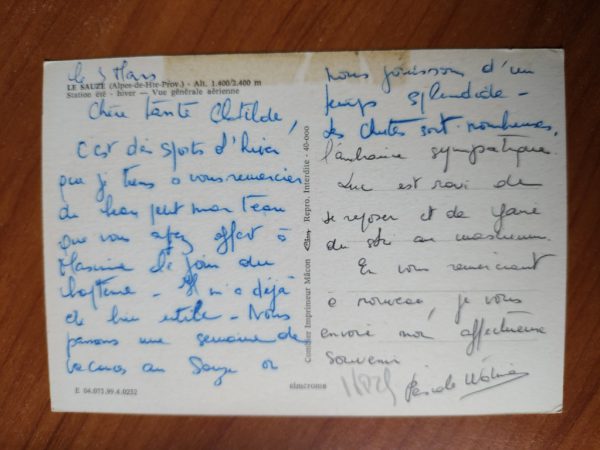 le 3 Mars
LE SAUZE (Alpes-de-Hte-Prov.) - Alt. 1.400/2.400 m
Station été - hiver — Vue générale aérienne
Chère tante Clotilde,
C'est des sports d'hiver
que je tiens à vous remercier
du beau petit manteau
que vous avez offert à
le jour du
baptême - Il m'a déjà
été bien utile - Nous
passons une semaine de
vacances au Sauze où
E 04.073.99.4.0232
Combier Imprimeur Mâcon Repro. Interdite - 40-000
nous jouissons d'un
temps splendide -
Les chutes sont nombreuses,
l'ambiance sympathique.
Luc est ravi de
se reposer et de faire
du ski au maximum.
En vous remerciant
à nouveau, je vous
envoie mon affectueux
souvenir
Pascale